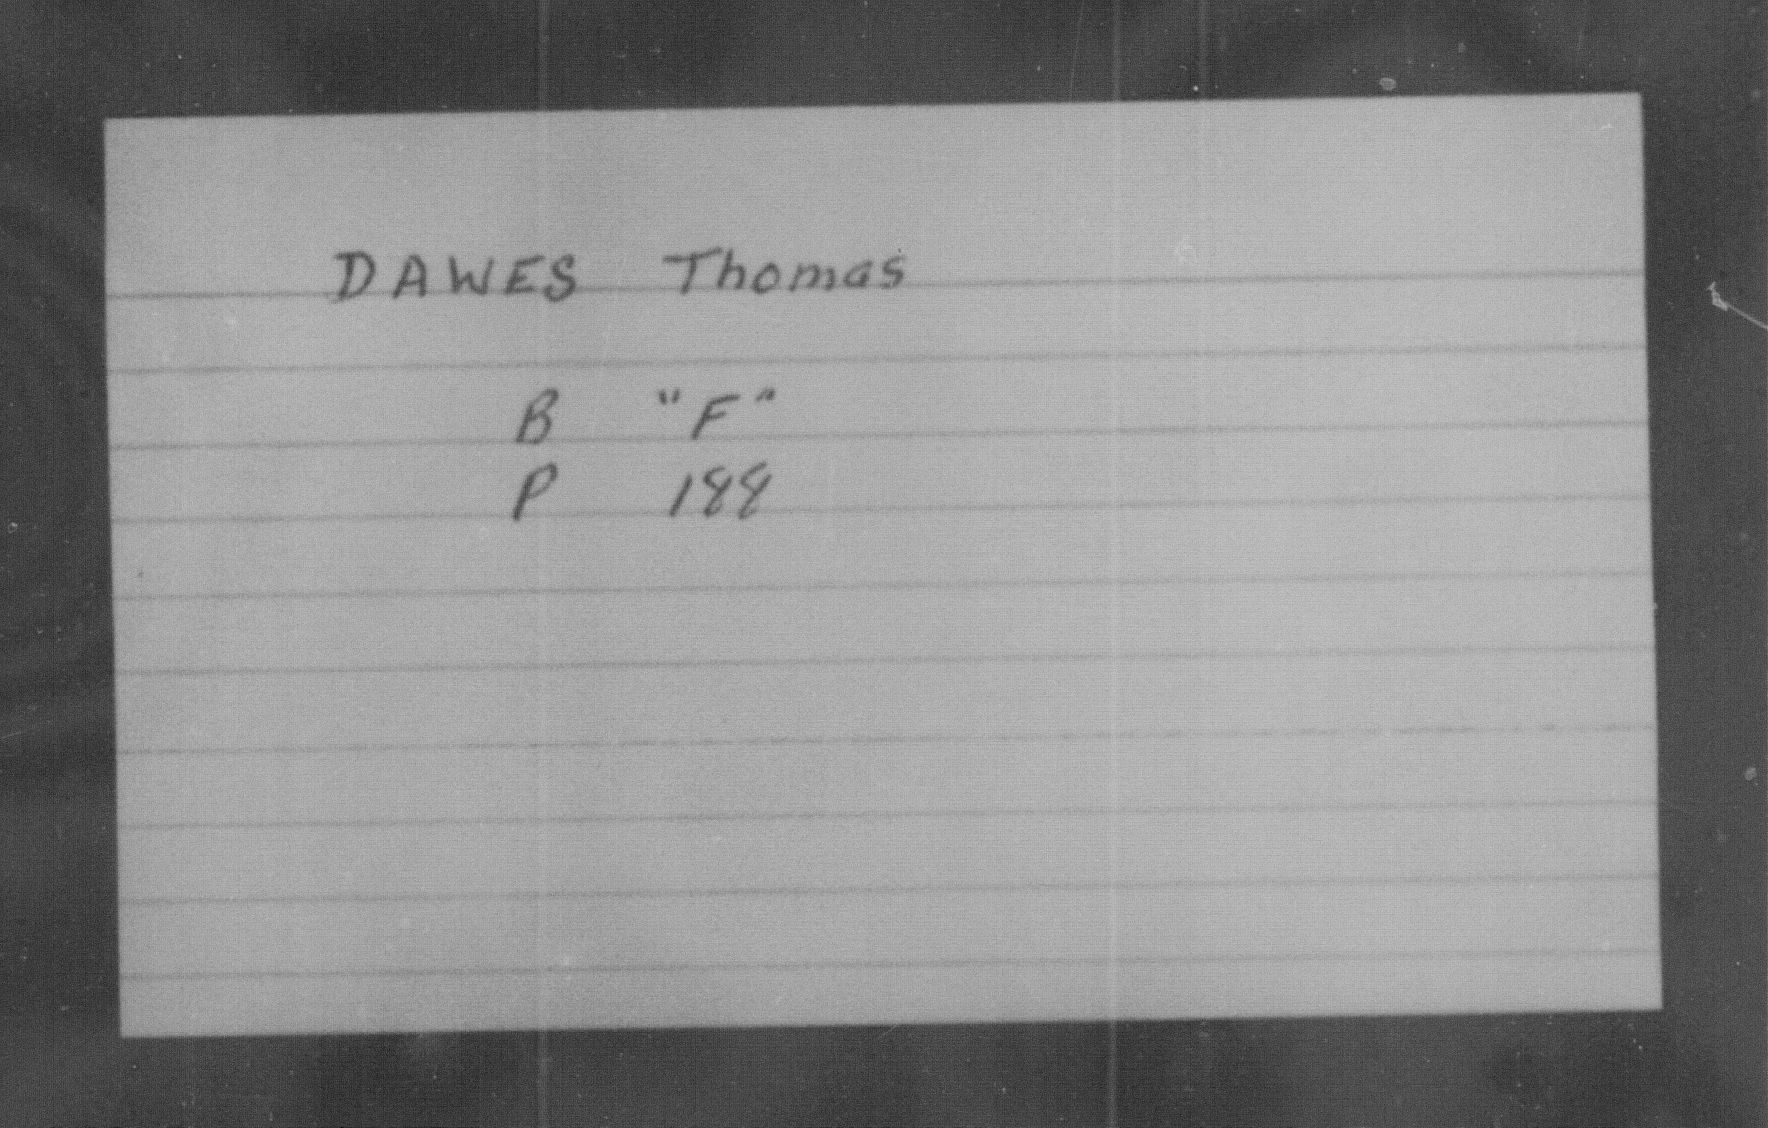 DAWES Thomas
B "F"
P 188